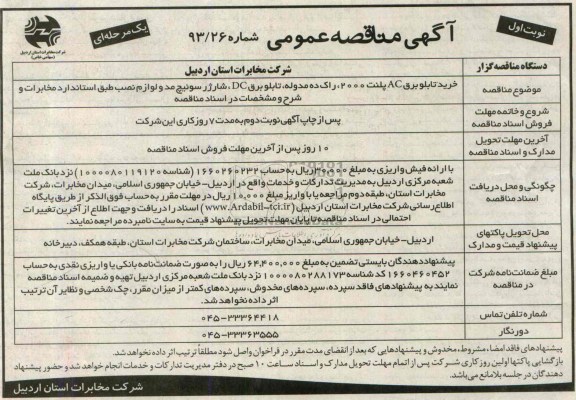 نوبت اول
آگهی مناقصه عمومی شماره ۹۳/۲۶
یک مرحله‌ای
شرکت مخابرات استان اردبیل
(سهامی خاص)
دستگاه مناقصه گزار
شرکت مخابرات استان اردبیل
موضوع مناقصه
خرید تابلو برق AC پلنت ۲۰۰۰، راک ده مدوله، تابلو برق DC، شارژر سوئیچ مد و لوازم نصب طبق استاندارد مخابرات و
شرح و مشخصات در اسناد مناقصه
شروع و خاتمه مهلت
فروش اسناد مناقصه
پس از چاپ آگهی نوبت دوم به مدت ۷ روز کاری این شرکت
آخرین مهلت تحویل
مدارک و اسناد مناقصه
۱۰ روز پس از آخرین مهلت فروش اسناد مناقصه
چگونگی و محل دریافت
اسناد مناقصه
با ارائه فیش واریزی به مبلغ ریال به حساب ۱۶۶۰۲۶۰۲۳۲ (شناسه ۱۰۰۰۰۸۰۱۱۹۱۲۰) نزد بانک ملت
شعبه مرکزی اردبیل به مدیریت تدارکات و خدمات واقع در اردبیل- خیابان جمهوری اسلامی، میدان مخابرات، شرکت
مخابرات استان، طبقه دوم مراجعه یا با واریز مبلغ ۱۰,۰۰۰ ریال در مهلت مقرر به حساب فوق الذکر از طریق پایگاه
اطلاع رسانی شرکت مخابرات استان اردبیل (www.Ardabil-tci.ir) اسناد را دریافت و جهت اطلاع از آخرین تغییرات
احتمالی در اسناد مناقصه تا پایان مهلت تحویل پیشنهاد قیمت به سایت نامبرده مراجعه نمایند.
محل تحویل پاکتهای
پیشنهاد قیمت و مدارک
اردبیل- خیابان جمهوری اسلامی، میدان مخابرات، ساختمان شرکت مخابرات استان، طبقه همکف، دبیرخانه
مبلغ ضمانت نامه شرکت
در مناقصه
پیشنهاددهندگان بایستی تضمین به مبلغ ۶۴,۴۰۰,۰۰۰ ریال را به صورت ضمانت نامه بانکی یا واریزی نقدی به حساب
۱۶۶۰۴۶۰۴۵۲ کد شناسه ۱۰۰۰۰۸۰۲۸۸۱۷۳ نزد بانک ملت شعبه مرکزی اردبیل تهیه و ضمیمه اسناد مناقصه
نمایند به پیشنهادهای فاقد سپرده، سپرده‌های مخدوش، سپرده‌های کمتر از میزان مقرر، چک شخصی و نظایر آن ترتیب
اثر داده نخواهد شد.
شماره تلفن تماس
۰۴۵-۳۳۳۶۴۴۱۸
دورنگار
۰۴۵-۳۳۳۶۳۵۵۵
پیشنهادهای فاقد امضاء، مشروط، مخدوش و پیشنهادهایی که بعد از انقضای مدت مقرر در فراخوان واصل شود مطلقاً ترتیب اثر داده نخواهد شد.
بازگشایی پاکتها اولین روز کاری شرکت پس از اتمام مهلت تحویل مدارک و اسناد ساعت ۱۰ صبح در دفتر مدیریت تدارکات و خدمات انجام خواهد شد و حضور پیشنهاد
دهندگان در جلسه بلامانع می‌باشد.
شرکت مخابرات استان اردبیل